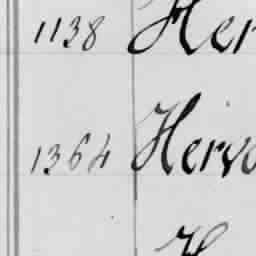 1138 Her
1364 Hervo
H